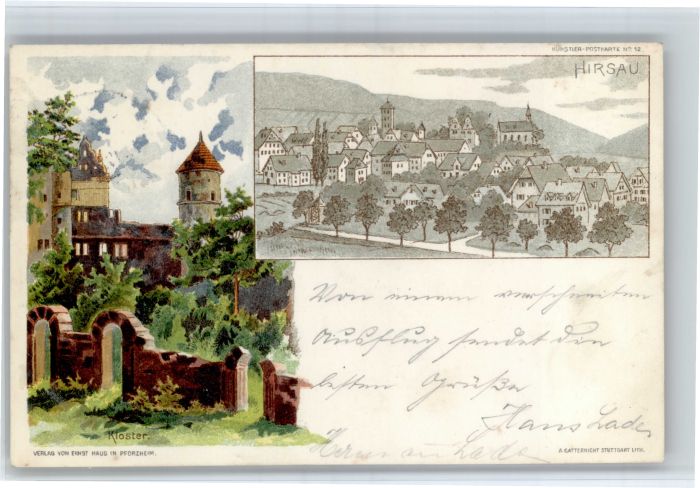 KÜNSTLER-POSTKARTE No 12.
HIRSAU
Von einem verschneiten
Ausflug sendet die
besten Grüße
Hans Lade
Kloster.
VERLAG VON ERNST HAUS IN PFORZHEIM.
A. GATTERNICHT STUTTGART LITH.